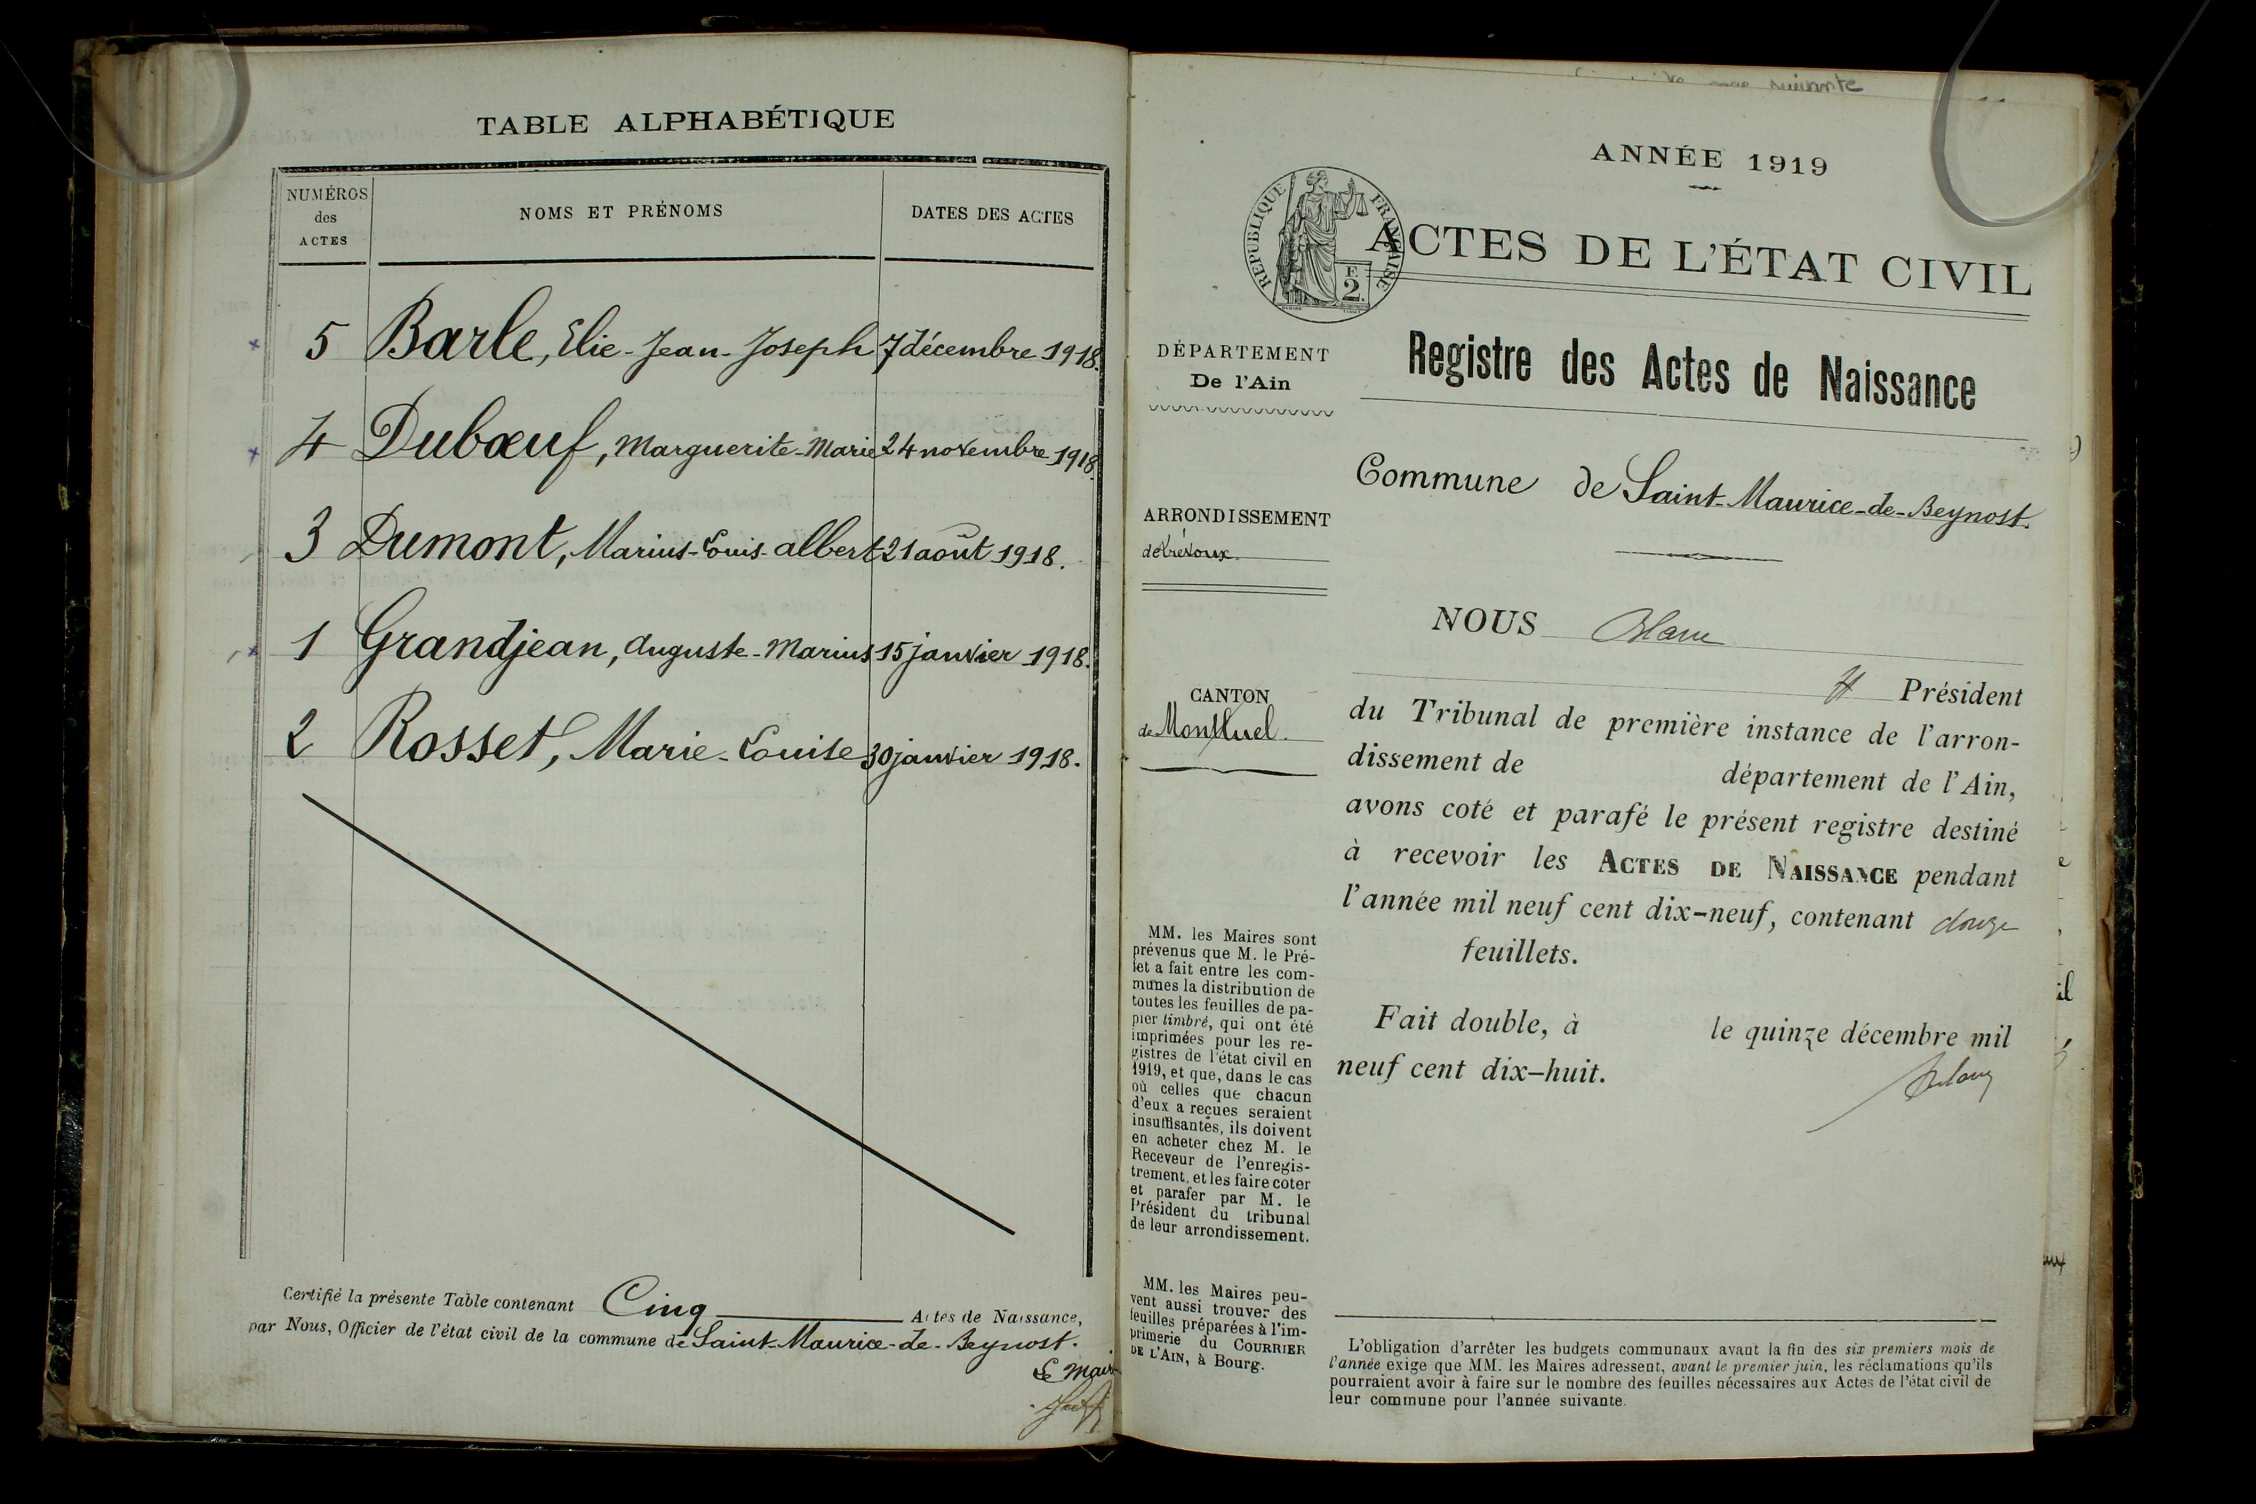 TABLE ALPHABÉTIQUE
NUMÉROS
des
ACTES
NOMS ET PRÉNOMS
DATES DES ACTES
5 Barle, Elie-Jean-Joseph 7 décembre 1918.
4 Dubœuf, Marguerite-Marie 24 novembre 1918.
3 Dumont, Marius-Louis-Albert 21 août 1918.
1 Grandjean, Auguste-Marius 15 janvier 1918.
2 Rosset, Marie-Louise 30 janvier 1918.
Certifié la présente Table contenant Cinq Actes de Naissance,
par Nous, Officier de l'état civil de la commune de Saint-Maurice-de-Beynost.
Le Maire
suivante
ANNÉE 1919
RÉPUBLIQUE FRANÇAISE
F.
2.
ACTES DE L'ÉTAT CIVIL
Registre des Actes de Naissance
DÉPARTEMENT
De l'Ain
Commune de Saint-Maurice-de-Beynost.
ARRONDISSEMENT
de Trévoux.
CANTON
de Montluel.
NOUS Blanc
Président
du Tribunal de première instance de l'arron-
dissement de département de l'Ain,
avons coté et parafé le présent registre destiné
à recevoir les ACTES DE NAISSANCE pendant
l'année mil neuf cent dix-neuf, contenant douze
feuillets.
Fait double, à le quinze décembre mil
neuf cent dix-huit.
MM. les Maires sont
prévenus que M. le Pré-
fet a fait entre les com-
munes la distribution de
toutes les feuilles de pa-
pier timbré, qui ont été
imprimées pour les re-
gistres de l'état civil en
1919, et que, dans le cas
où celles que chacun
d'eux a reçues seraient
insuffisantes, ils doivent
en acheter chez M. le
Receveur de l'enregis-
trement, et les faire coter
et parafer par M. le
Président du tribunal
de leur arrondissement.
MM. les Maires peu-
vent aussi trouver des
feuilles préparées à l'im-
primerie du COURRIER
DE L'AIN, à Bourg.
L'obligation d'arrêter les budgets communaux avant la fin des six premiers mois de
l'année exige que MM. les Maires adressent, avant le premier juin, les réclamations qu'ils
pourraient avoir à faire sur le nombre des feuilles nécessaires aux Actes de l'état civil de
leur commune pour l'année suivante.